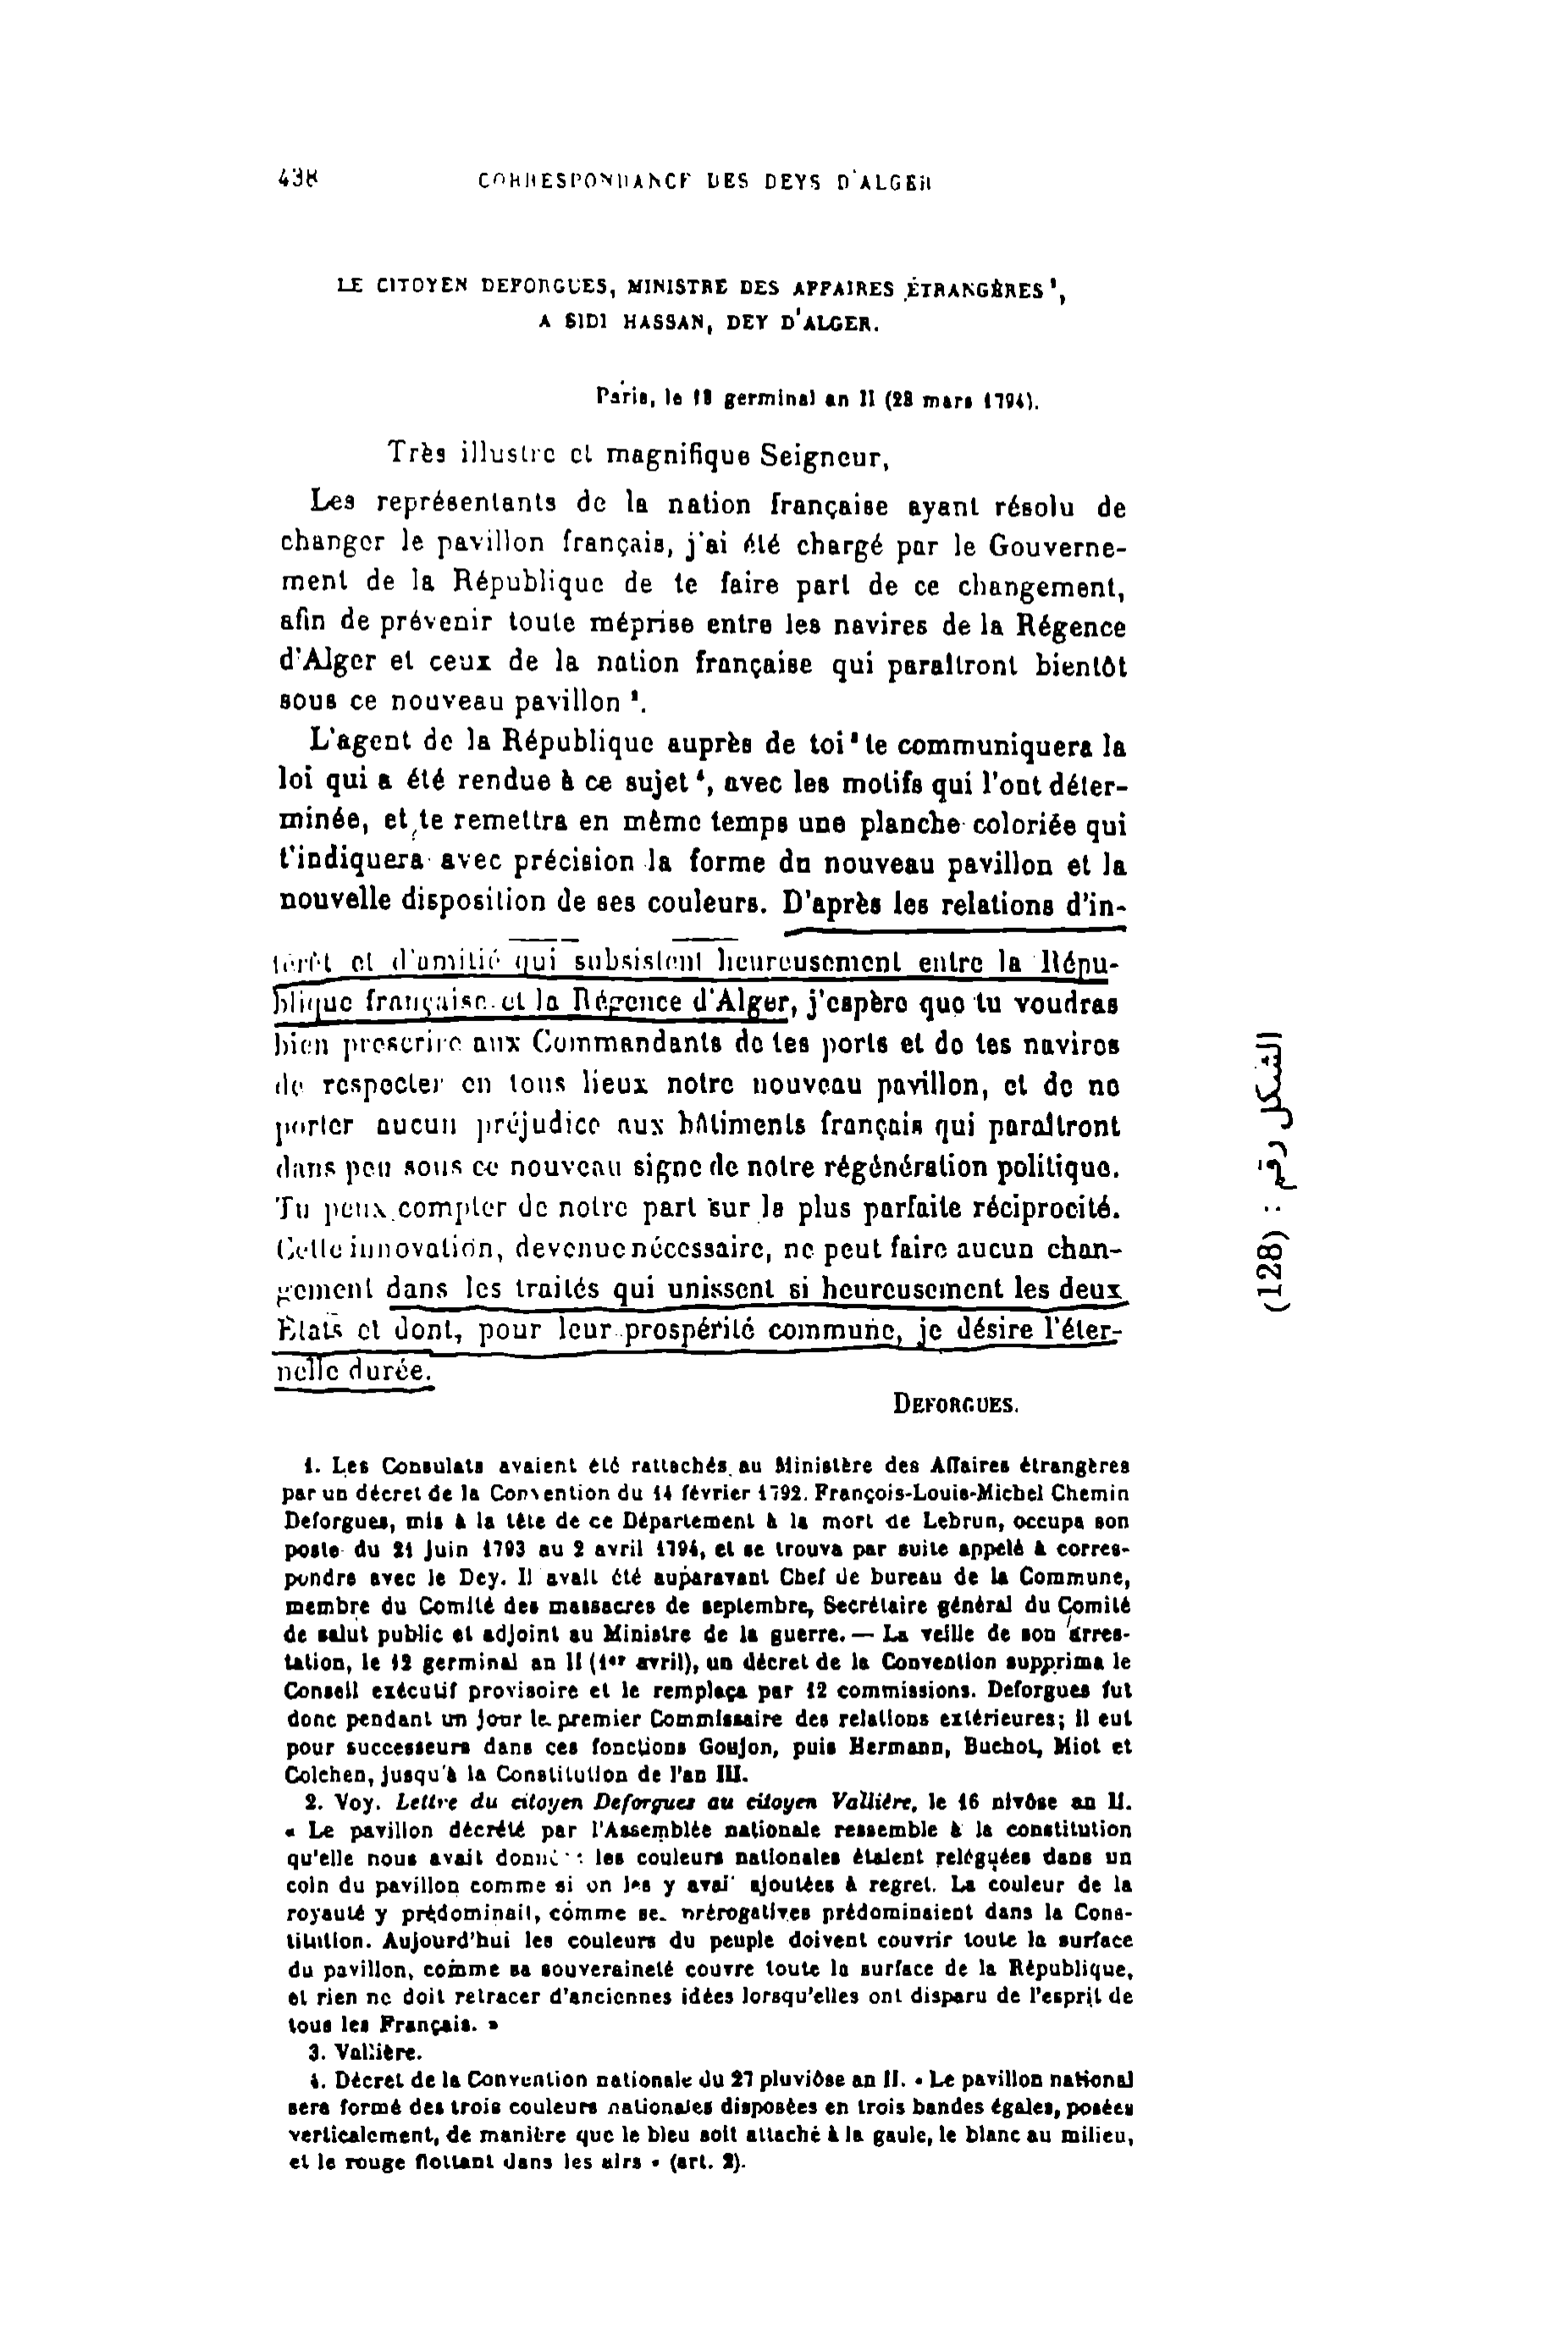 438 CORRESPONDANCE DES DEYS D'ALGER
LE CITOYEN DEFORGUES, MINISTRE DES AFFAIRES ÉTRANGÈRES ¹,
A SIDI HASSAN, DEY D'ALGER.
Paris, le germinal an II (28 mars 1794).
Très illustre et magnifique Seigneur,
Les représentants de la nation française ayant résolu de
changer le pavillon français, j'ai été chargé par le Gouverne-
ment de la République de te faire part de ce changement,
afin de prévenir toute méprise entre les navires de la Régence
d'Alger et ceux de la nation française qui paraîtront bientôt
sous ce nouveau pavillon ².
L'agent de la République auprès de toi ³ te communiquera la
loi qui a été rendue à ce sujet ⁴, avec les motifs qui l'ont déter-
minée, et te remettra en même temps une planche coloriée qui
t'indiquera avec précision la forme du nouveau pavillon et la
nouvelle disposition de ses couleurs. D'après les relations d'in-
térêt et d'amitié qui subsistent heureusement entre la Répu-
blique française et la Régence d'Alger, j'espère que tu voudras
bien prescrire aux Commandants de tes ports et de tes navires
de respecter en tous lieux notre nouveau pavillon, et de ne
porter aucun préjudice aux bâtiments français qui paraîtront
dans peu sous ce nouveau signe de notre régénération politique.
Tu peux compter de notre part sur la plus parfaite réciprocité.
Cette innovation, devenue nécessaire, ne peut faire aucun chan-
gement dans les traités qui unissent si heureusement les deux
États et dont, pour leur prospérité commune, je désire l'éter-
nelle durée.
DEFORGUES.
1. Les Consulats avaient été rattachés au Ministère des Affaires étrangères
par un décret de la Convention du 14 février 1792. François-Louis-Michel Chemin
Deforgues, mis à la tête de ce Département à la mort de Lebrun, occupa son
poste du 21 juin 1793 au 2 avril 1794, et se trouva par suite appelé à corres-
pondre avec le Dey. Il avait été auparavant Chef de bureau de la Commune,
membre du Comité des massacres de septembre, Secrétaire général du Comité
de salut public et adjoint au Ministre de la guerre. — La veille de son arres-
tation, le 12 germinal an II (1er avril), un décret de la Convention supprima le
Conseil exécutif provisoire et le remplaça par 12 commissions. Deforgues fut
donc pendant un jour le premier Commissaire des relations extérieures; il eut
pour successeurs dans ces fonctions Goujon, puis Hermann, Buchot, Miot et
Colchen, jusqu'à la Constitution de l'an III.
2. Voy. Lettre du citoyen Deforgues au citoyen Vallière, le 16 nivôse an II.
« Le pavillon décrété par l'Assemblée nationale ressemble à la constitution
qu'elle nous avait donnée : les couleurs nationales étaient reléguées dans un
coin du pavillon comme si on les y avait ajoutées à regret. La couleur de la
royauté y prédominait, comme ses prérogatives prédominaient dans la Cons-
titution. Aujourd'hui les couleurs du peuple doivent couvrir toute la surface
du pavillon, comme sa souveraineté couvre toute la surface de la République,
et rien ne doit retracer d'anciennes idées lorsqu'elles ont disparu de l'esprit de
tous les Français. »
3. Vallière.
4. Décret de la Convention nationale du 27 pluviôse an II. « Le pavillon national
sera formé des trois couleurs nationales disposées en trois bandes égales, posées
verticalement, de manière que le bleu soit attaché à la gaule, le blanc au milieu,
et le rouge flottant dans les airs » (art. 2).
الشكل رقم : (128)